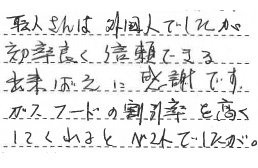 職人さんは外国人でしたが
効率良く信頼できる
出来ばえに感謝です。
ガスフードの割引率を高く
してくれるとベストでしたが。